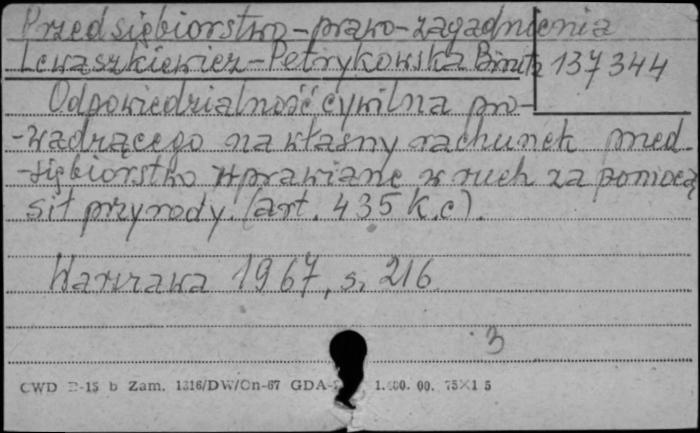 Przedsiębiorstwo-prawo-zagadnienia
Lewaszkiewicz-Petrykowska Biruta 137344
Odpowiedzialność cywilna pro-
-wadzącego na własny rachunek przed-
-siębiorstwo wprawiane w ruch za pomocą
sił przyrody. (art. 435 k.c).
Warszawa 1967, s. 216
3
CWD -15 b Zam. 1316/DW/On-67 GDA- 00. 75×1 5